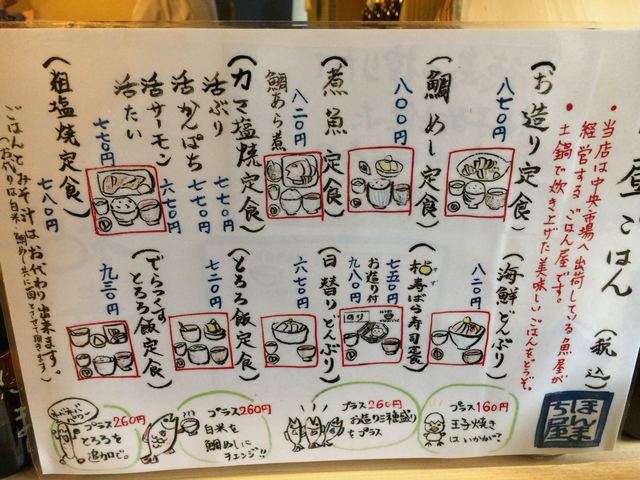 昼ごはん (税込)
• 当店は中央市場へ出荷している魚屋が
経営するごはん屋です。
• 土鍋で炊き上げた美味しいごはんをどうぞ。
(お造り定食)
八七〇円
(鯛めし定食)
八〇〇円
(煮魚定食)
鯛あら煮
八二〇円
(カマ塩焼定食)
活ぶり 七七〇円
活かんぱち 七七〇円
活サーモン 六七〇円
活たい
七七〇円
(粗塩焼定食)
七八〇円
ごはんとみそ汁はお代わり出来ます。
(海鮮どんぶり)
八二〇円
寿ばら寿司定食
七五〇円
お造り付
九八〇円
のり
(日替りどんぶり)
六七〇円
(とろろ飯定食)
七二〇円
(でらっくす
とろろ飯定食)
九三〇円
プラス160円
玉子焼き
はいかが?
プラス260円
お造り三種盛り
もプラス
プラス260円
白米を
鯛めしに
チェンジ!!
プラス260円
とろろを
追加で。
ほんま
ち屋